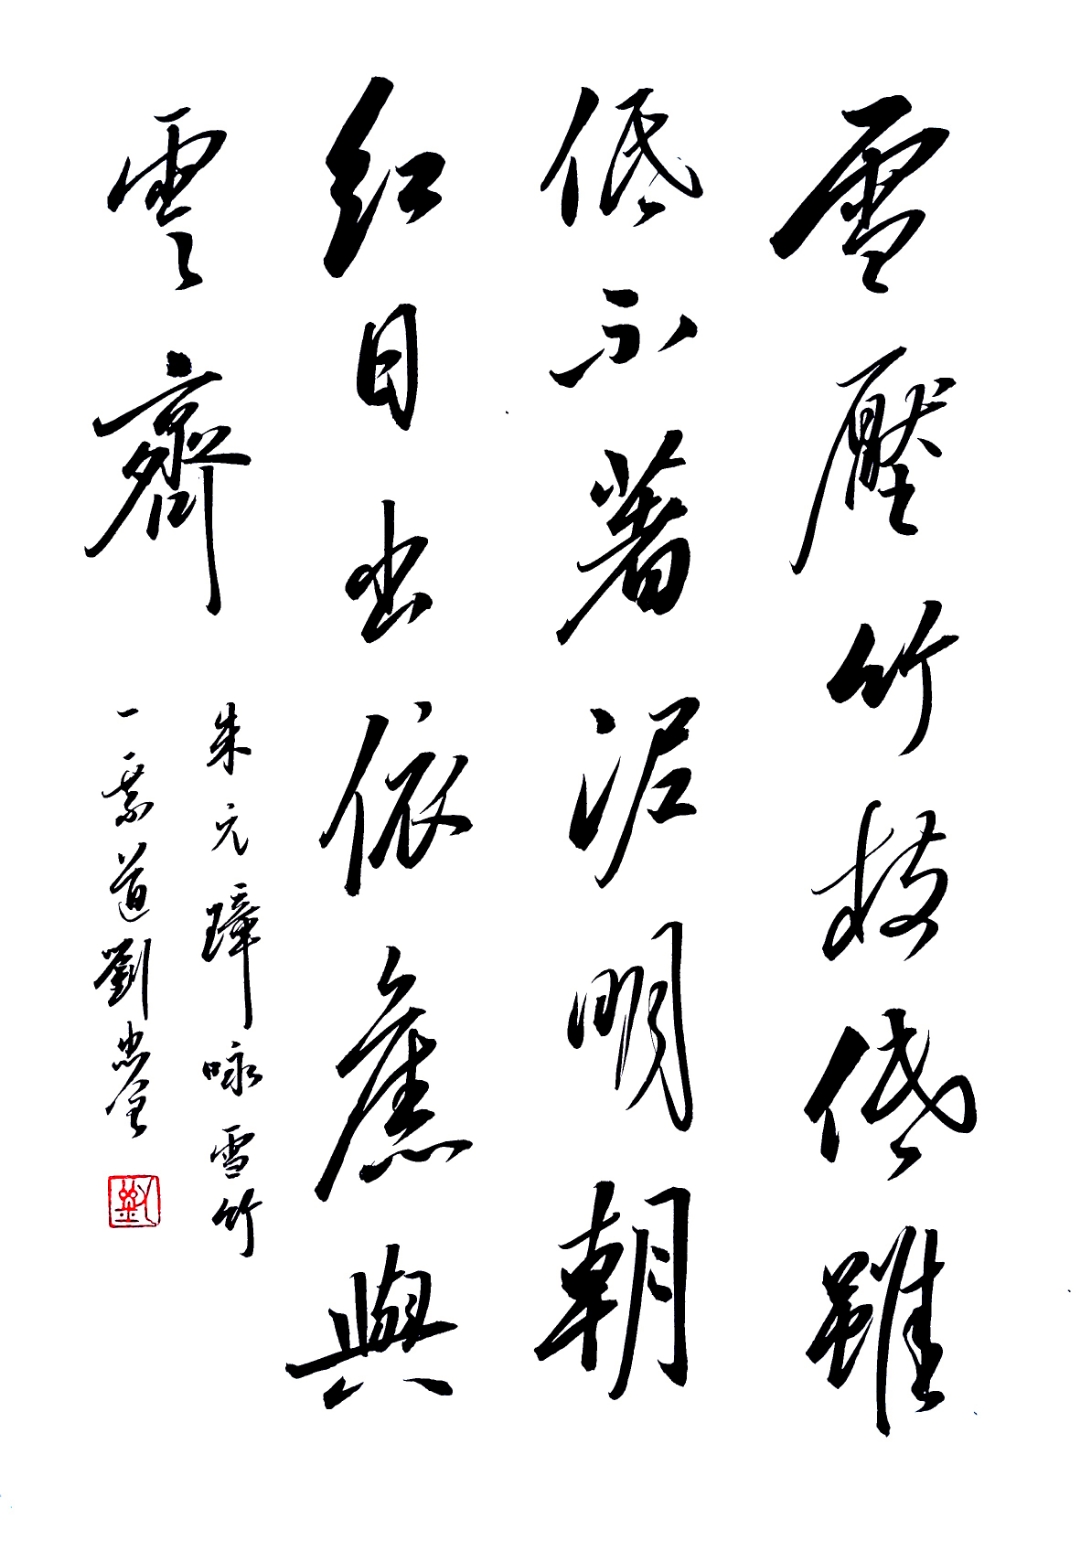 雪壓竹枝低雖
低不著泥明朝
紅日出依舊與
雲齊
朱元璋咏雪竹
一道劉忠全
劉